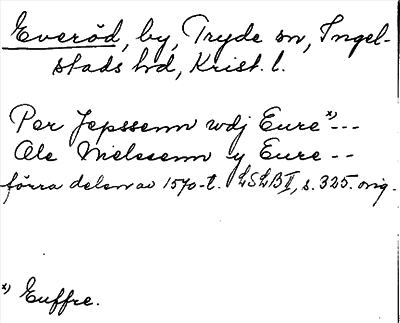 Everöd, by, Tryde sn, Ingel-
stads hd, Krist. l.
Per Jepssenn wdj Eure x) ---
Ole Nielssenn y Eure --
förra delen av 1570-t. LSLB II, s. 325. orig.
x) Euffre.